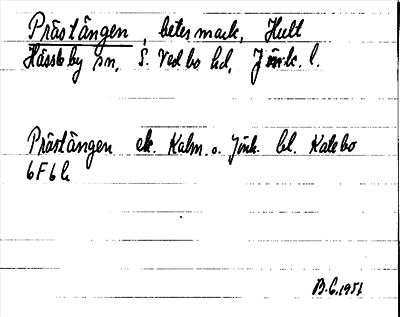 Prästängen, betesmark, Hult
Hässleby sn, S. Vedbo hd, Jönk. l.
Prästängen ek. Kalm. o. Jönk. bl. Kalebo
6F6h
B.G. 1951